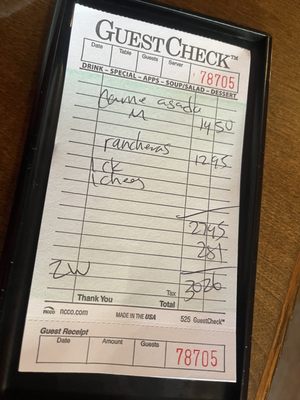 GUESTCHECK™
Date Table Guests Server
78705
DRINK – SPECIAL – APPS – SOUP/SALAD – DESSERT
carne asada
M 14.50
rancheros 12.95
1 ck
1 chees
27.45
2.81
2W
Tax 30.26
Thank You Total
ncco.com MADE IN THE USA 525 GuestCheck™
Guest Receipt
Date Amount Guests
78705